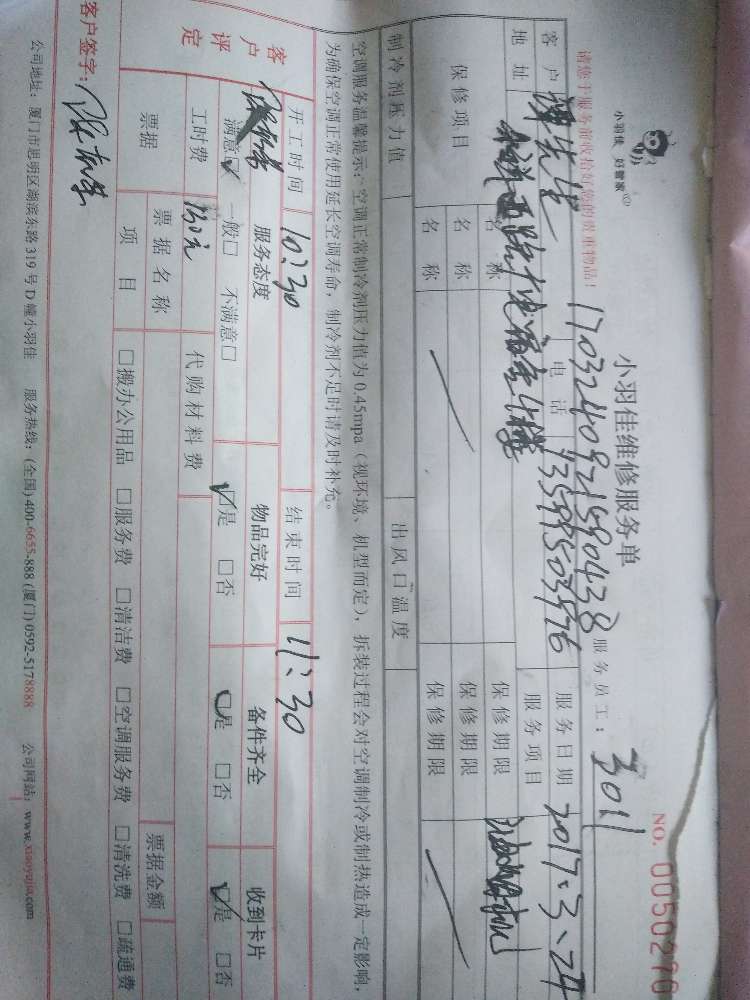 小羽佳 好管家
请您于服务前收拾好您的贵重物品!
小羽佳维修服务单
NO. 0050270
17032409215580438
服务员工: 301
客户 谭先生 电话 13599503576 服务日期 2017.3.24
地址 服务项目
保修项目 名称 保修期限
名称 保修期限
名称 保修期限
制冷剂压力值 出风口温度
空调服务温馨提示: 空调正常制冷剂压力值为0.45mpa (视环境、机型而定), 拆装过程会对空调制冷或制热造成一定影响,
为确保空调正常使用延长空调寿命, 制冷剂不足时请及时补充。
开工时间 10:30 结束时间 11:30
客户评定
服务态度 物品完好 备件齐全 收到卡片
满意☑ 一般□ 不满意□ ☑是 □否 ☑是 □否 ☑是 □否
工时费 130元 代购材料费
票据 票据名称 票据金额
项目 □搬办公用品 □服务费 □清洁费 □空调服务费 □清洗费 □疏通费
客户签字:
公司地址: 厦门市思明区湖滨东路319号D幢小羽佳 服务热线: (全国) 400-6655-888 (厦门) 0592-5178888 公司网站: www.xiaoyujia.com